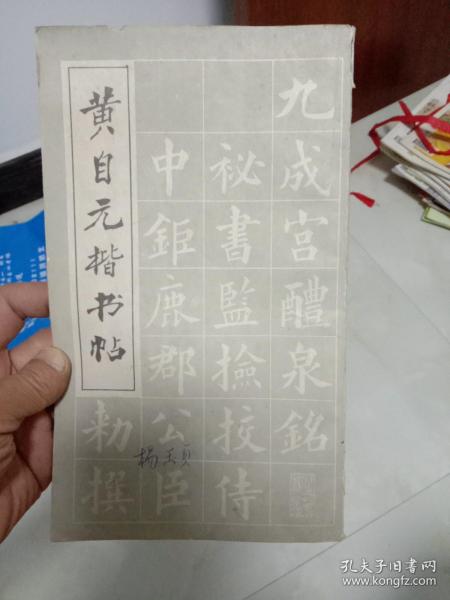 黄自元楷书帖
九成宫醴泉銘
秘書監撿挍侍
中鉅鹿郡公臣
勑撰
杨玉贞
孔夫子旧书网
www.kongfz.com